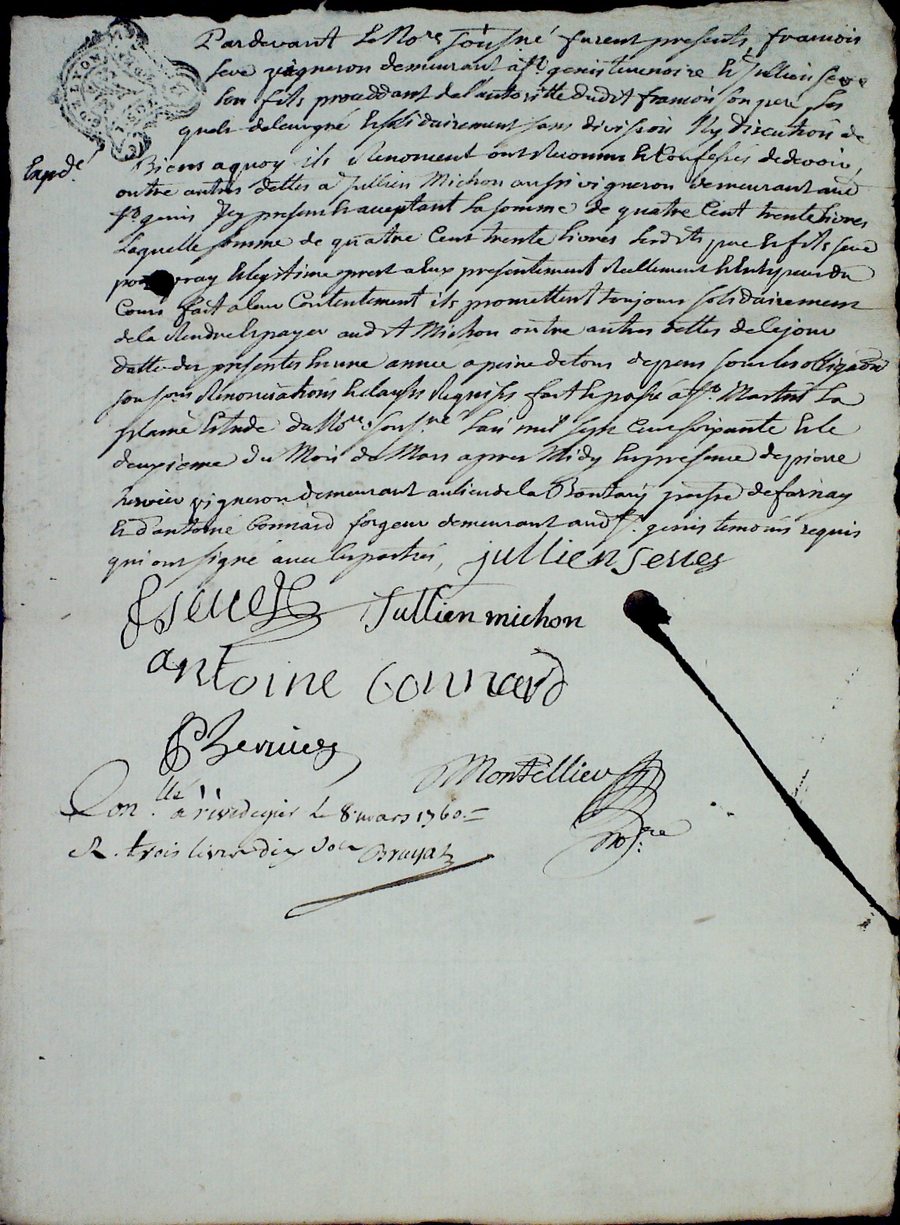 Pardevant Le No.re soussné furent presents, francois
seve vigneron demeurant a st genis terrenoire & Jullien seve
son fils proceddant de l'autoritte dudit francois son pere, les
quels de leur gré & solidairement sans division ny discution de
Expdé
Biens a quoy ils Renoncent ont Reconnu & Confessés de devoir
outre autres dettes a Jullien Michon aussi vigneron demeurant aud
st genis Jcy present & acceptant La somme de quatre Cent trente livres
Laquelle somme de quatre Cent trente livres lesdits pere & fils seve
pour vray & legitime prest a eux presentement Reellement & en especes du
Cours fait a leur Contentement ils promettent toujours solidairement
de la Rendre & payer audit Michon outre autres dettes de ce jour
datte des presentes en une annee a peine de tous depens sous les obligaôns
sousmis Renonciations & clauses Requises fait & passé á st Martin La
plaine Etude du No.re soussné L'an mil sept Cent soixante & le
deuxieme du Mois de Mars apres Midy En presence de pierre
hervier vigneron demeurant au lieu de la Bontary parsse de farnay
& d'antoine Connard forgeur demeurant aud st genis temoins requis
qui ont signé avec les parties, jullien seves
fseve Jullien michon
antoine Connard
P hervier
Montellier
No.re
Con.llé á rivedegier Le 8 mars 1760 =
R. trois livres dix sols Bruyas